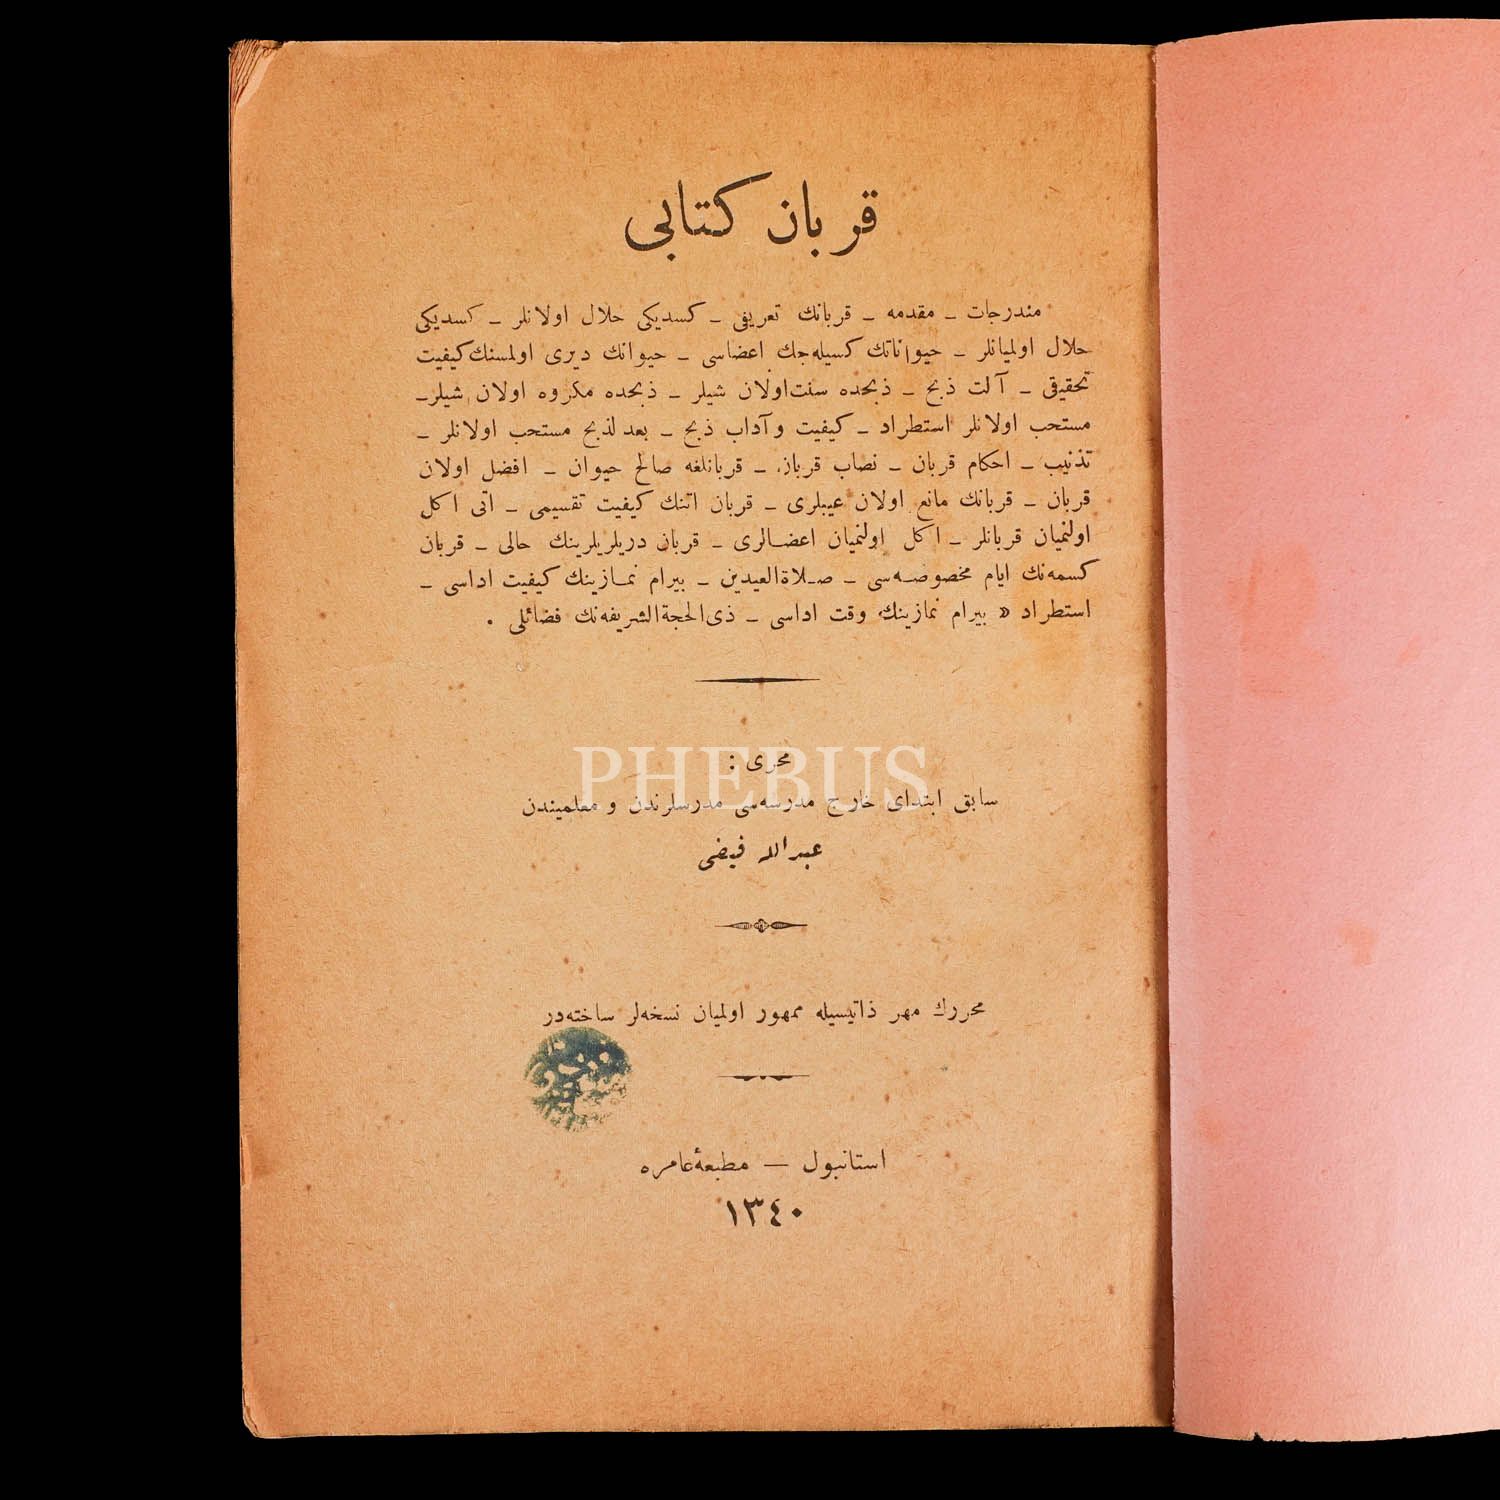 قربان كتابى
مندرجات ـ مقدمه ـ قربانك تعريفى ـ كسديكى حلال اولانلر ـ كسديكى
حلال اولميانلر ـ حيواناتك كسيله‌جك اعضاسى ـ حيوانك ديرى اولمسنك كيفيت
تحقيقى ـ آلت ذبح ـ ذبحده سنت اولان شيلر ـ ذبحده مكروه اولان شيلر ـ
مستحب اولانلر استطراد ـ كيفيت و آداب ذبح ـ بعد لذبح مستحب اولانلر ـ
تذنيب ـ احكام قربان ـ نصاب قربان ـ قربانلغه صالح حيوان ـ افضل اولان
قربان ـ قربانك مانع اولان عيبلرى ـ قربان اتنك كيفيت تقسيمى ـ اتى اكل
اولنميان قربانلر ـ اكل اولنميان اعضالرى ـ قربان دريلريلرينك حالى ـ قربان
كسمه‌نك ايام مخصوصه‌سى ـ صلاة العيدين ـ بيرام نمازينك كيفيت اداسى ـ
استطراد « بيرام نمازينك وقت اداسى ـ ذى الحجة الشريفه‌نك فضائلى .
محررى :
PHEBUS
سابق ابتداى خارج مدرسه‌سى مدرسلرندن و معلميندن
عبدالله فيضى
محررك مهر ذاتيسيله ممهور اولميان نسخه‌لر ساخته‌در
استانبول — مطبعۀ عامره
١٣٤٠